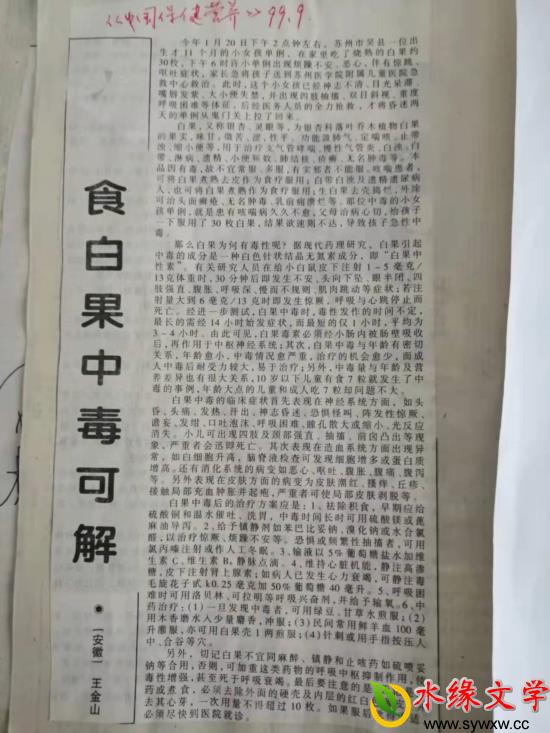 《中国保健营养》99.9.
食白果中毒可解
●
（安徽）王金山
今年1月20日下午2点钟左右，苏州市吴县一位出
生才11个月的小女孩单倒，在家里吃了烧熟的白果约
30枚，下午6时许小单倒出现烦躁不安、恶心，伴有惊跳、
呕吐症状，家长急将孩子送到苏州医学院附属儿童医院急
救中心救治。此时，这个小女孩已经神志不清、目光呆滞、
嘴唇发紫、大小便失禁，并出现四肢抽搐、双目斜视、重度
呼吸困难等体征，后经医务人员的全力抢救，才将昏迷两
天的单倒从鬼门关上拉了回来。
白果，又称银杏、灵眼等，为银杏科落叶乔木植物白果
的果实，味甘、微苦、涩，性平。功能敛肺气、定喘咳、止带
浊、缩小便等，用于治疗支气管哮喘、慢性气管炎、白浊、白
带、淋病、遗精、小便频数、肺结核、疥癣、无名肿毒等。本
品因有毒，故不宜常服、多服，有实邪者不能服。咳喘患者，
可将白果煮熟去皮作为食疗服用；白带白浊及遗精遗尿病
人，也可将白果煮熟作为食疗服用；生白果去壳捣烂，外涂
可治头面癣疮、无名肿毒、乳痈溃烂等。那位中毒的小女
孩单倒，就是患有咳喘病久久不愈，父母治病心切，给孩子
一下服用了30枚白果，结果欲速则不达，导致孩子急性中
毒。
那么白果为何有毒性呢？据现代药理研究，白果引起
中毒的成分是一种白色针状结晶无氮素成分，即“白果中
性素”。有关研究人员在给小白鼠皮下注射1－5毫克／
13克体重时，30分钟后即发生不安、头向下坠、眼半闭、四
肢强直、腹胀、呼吸深、慢而不规则、肌肉跳动等症状；若注
射量大到6毫克／13克时即发生惊厥，呼吸与心跳停止而
死亡。经进一步测试，白果中毒时，毒性发作的时间不定，
最长的需经14小时始发症状，而最短的仅1小时，平均为
3－4小时。由此可见，白果毒素必须经小肠内被肠壁吸收
后，再作用于中枢神经系统；其次，白果中毒与年龄有密切
关系，年龄愈小，中毒情况愈严重，治疗的机会愈少，而成
人中毒后耐受力较大，易于治疗；另外，中毒量与年龄及营
养差异也有很大关系，10岁以下儿童有食7粒就发生了中
毒的事例，年龄大点的儿童和成人吃7粒却问题不大。
白果中毒的临床症状首先表现在神经系统方面，如头
昏、头痛、发热、汗出、神志昏迷、恐惧怪叫、阵发性惊厥、
谵妄、发绀、口吐泡沫、呼吸困难、瞳孔散大或缩小、光反应
消失。小儿可出现四肢及颈部强直、抽搐、前囟凸出等现
象，严重者会迅即死亡。其次表现在造血系统方面出现异
常，如白细胞升高，脑脊液检查可发现细胞增多或蛋白质
增高。还有消化系统的病变如恶心、呕吐、腹胀、腹痛、腹泻
等。另外表现在皮肤方面的病变为皮肤潮红、搔痒、丘疹、
接触局部充血肿胀并起疱，严重者可使局部皮肤剥脱等。
白果中毒后的治疗方案应是：1、祛除积食，早期应给
硫酸铜和温水催吐、洗胃，中毒时间长时可用硫酸镁或蓖
麻油导泻。2、给予镇静剂如苯巴比妥钠、溴化钠或水合氯
醛，以治疗惊厥、烦躁不安等。恐惧或频繁性抽搐者，可用
氯丙嗪注射或作人工冬眠。3、输液以5％葡萄糖盐水加维
生素C、维生素B，静脉点滴。4、维持心脏机能，静注高渗
糖，皮下注射肾上腺素；如病人已发生心力衰竭，可静注毒
毛旋花子甙k0.25毫克加50％葡萄糖40毫升。5、呼吸困
难时可用洛贝林、可拉明等呼吸兴奋剂，并给予输氧。6、中
药治疗：(1)一旦发现中毒者，可用绿豆、甘草水煎服；(2)
用木香磨水入少量麝香，冲服；(3)民间常用鲜羊血100毫
升灌服，亦可用白果壳1两煎服；(4)针刺或用手指按压人
中、合谷等穴。
另外，切记白果不宜同麻醉、镇静和止咳药如硫喷妥
钠等合用，否则，可加重这类药物的呼吸中枢抑制作用，使
毒性增强，甚至死于呼吸衰竭。最后要注意的是
药或煮食，必须去除外面的硬壳及内层的红白色
去其心芽，一次用量不得超过10枚。如果服后
必须尽快到医院就诊。
水缘文学
www.sywxw.cc